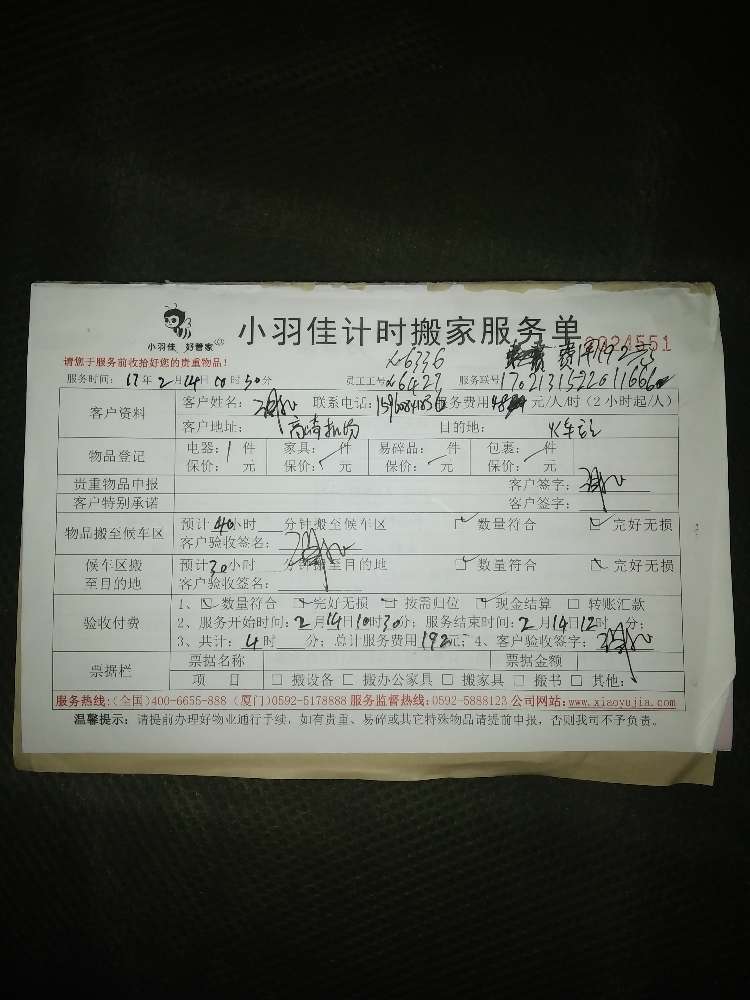 小羽佳 好管家
小羽佳计时搬家服务单
0024551
请您于服务前收拾好您的贵重物品!
x-6336
费用192元
服务时间: 17年2月14日10时30分 员工工号 x6427 服务联号
客户资料 客户姓名: 联系电话: 服务费用: 48 元/人/时(2小时起/人)
客户地址: 高崎机场 目的地: 火车站
物品登记 电器: 1 件 家具: 件 易碎品: 件 包裹: 件
保价: 元 保价: 元 保价: 元 保价: 元
贵重物品申报 客户签字:
客户特别承诺 客户签字:
物品搬至候车区 预计 40 小时 分钟搬至候车区 数量符合 完好无损
客户验收签名:
候车区搬至目的地 预计30小时 分钟搬至目的地 数量符合 完好无损
客户验收签名:
验收付费 1、 数量符合 完好无损 按需归位 现金结算 转账汇款
2、服务开始时间: 2月14日10时30分; 服务结束时间: 2月14日12时 分;
3、共计: 4时 分; 总计服务费用192元; 4、客户验收签字:
票据栏 票据名称 票据金额
项 目 搬设备 搬办公家具 搬家具 搬书 其他:
服务热线:(全国)400-6655-888 (厦门)0592-5178888 服务监督热线:0592-5888123 公司网站:www.xiaoyujia.com
温馨提示: 请提前办理好物业通行手续, 如有贵重、易碎或其它特殊物品请提前申报, 否则我司不予负责。